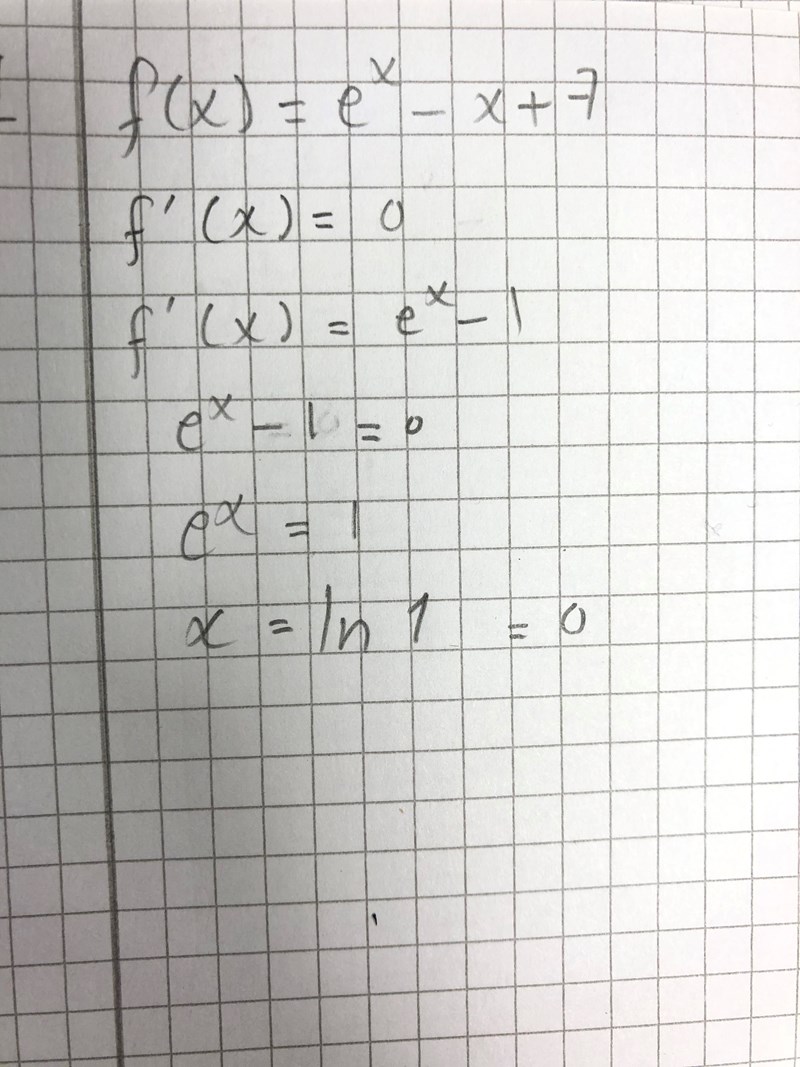 f(x) = e^x - x + 7
f'(x) = 0
f'(x) = e^x - 1
e^x - 1 = 0
e^x = 1
x = ln 1 = 0